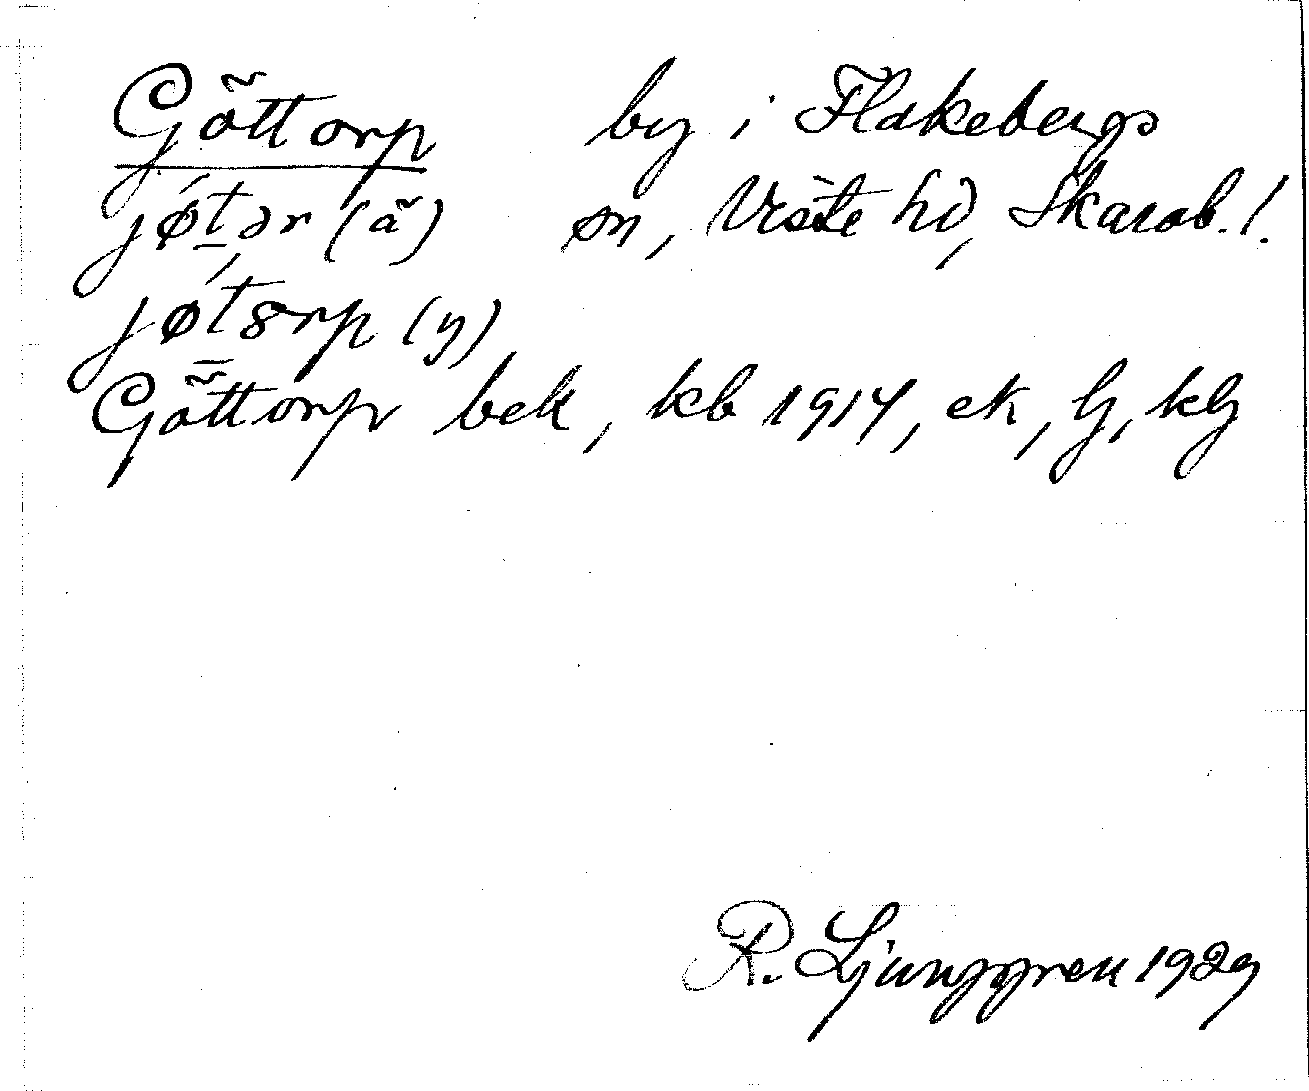 Göttorp by i Flakebergs
jǿt̠ər (ä) sn, Viste hd, Skarab. l.
jǿt̠8rp (y)
Göttorp bek, kb 1914, ek, lj, klj
R. Ljunggren 1929